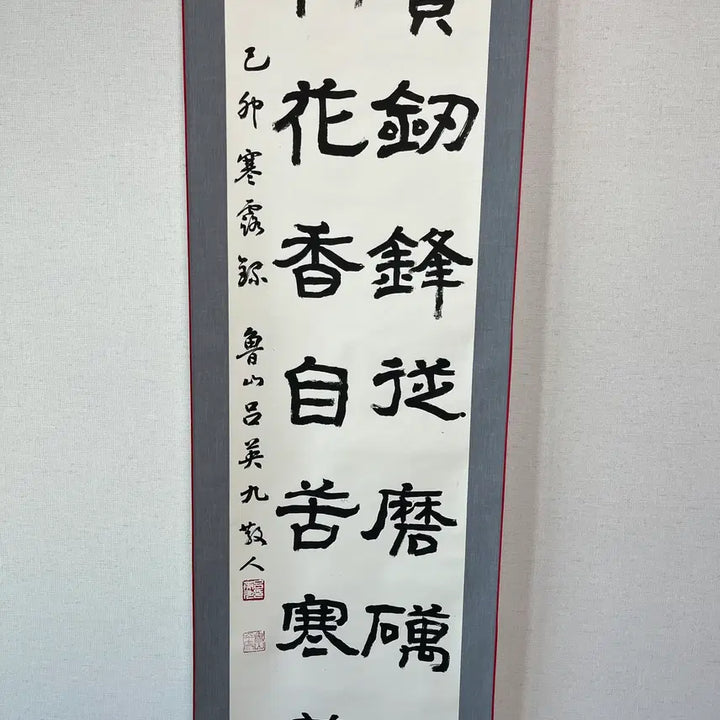 釼鋒從磨礪
花香自苦寒
己卯寒露錄 魯山呂英九散人